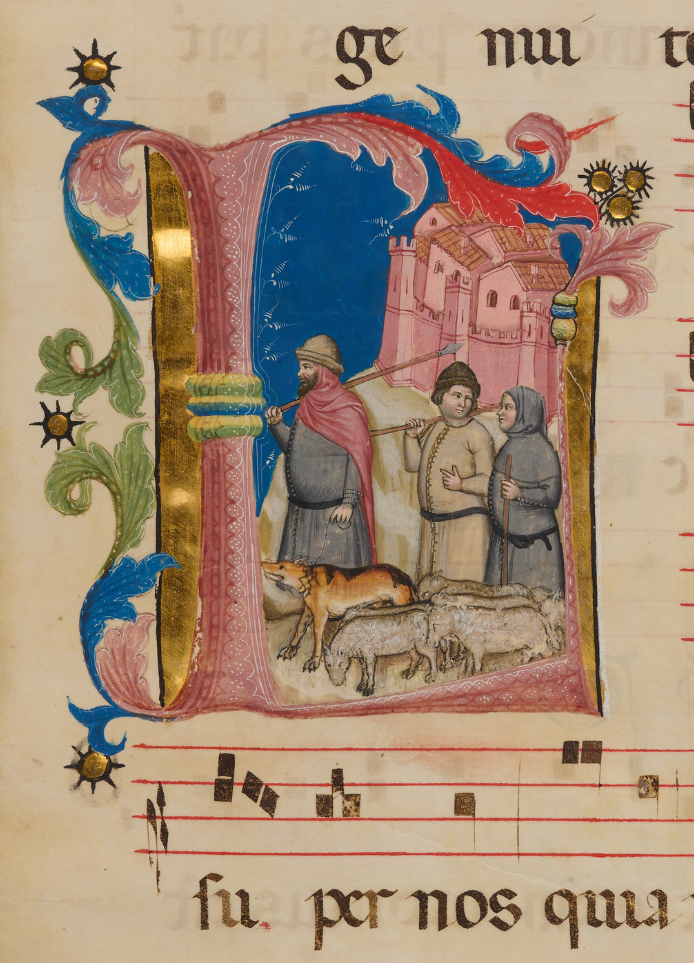 ge nui te
su per nos quia